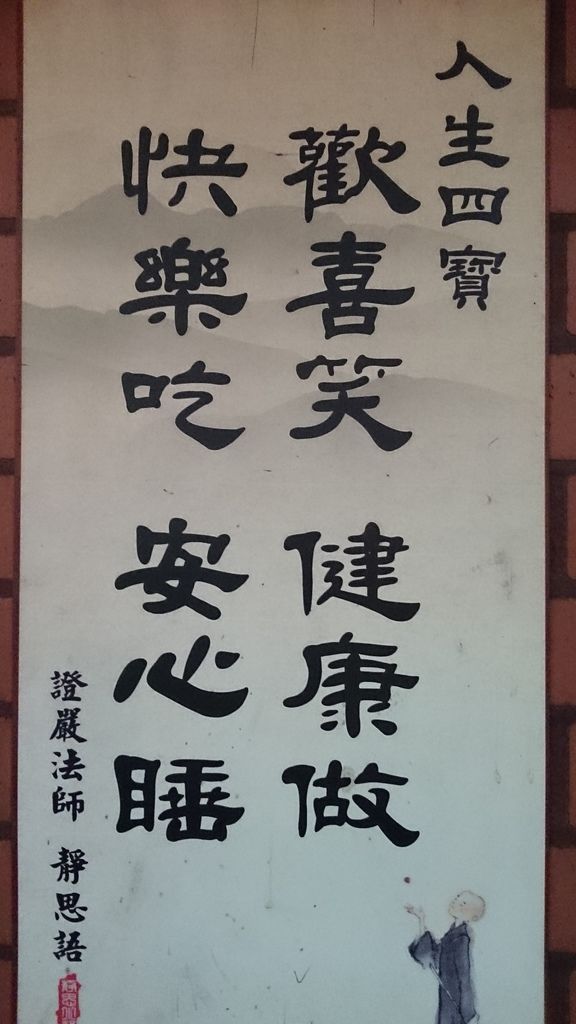 人生四寶
歡喜笑 健康做
快樂吃 安心睡
證嚴法師 靜思語